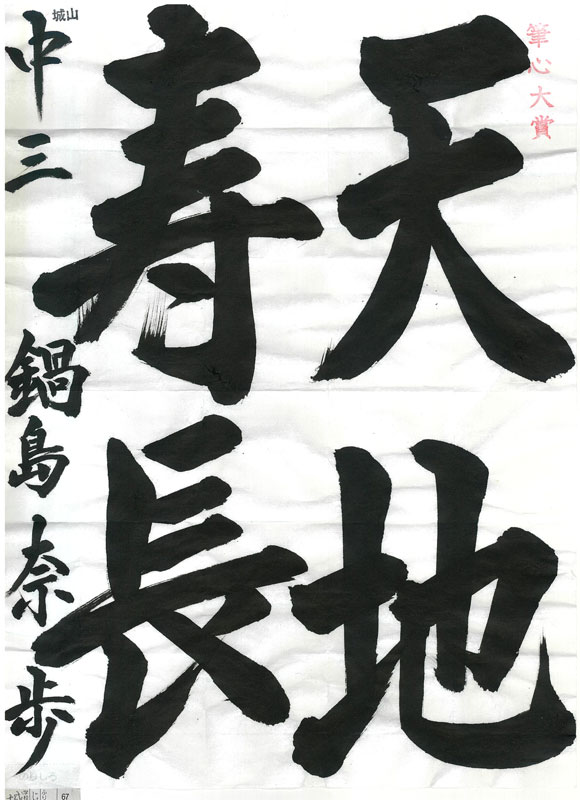 筆心大賞
天地
寿長
城山
中三 鍋島奈歩
67